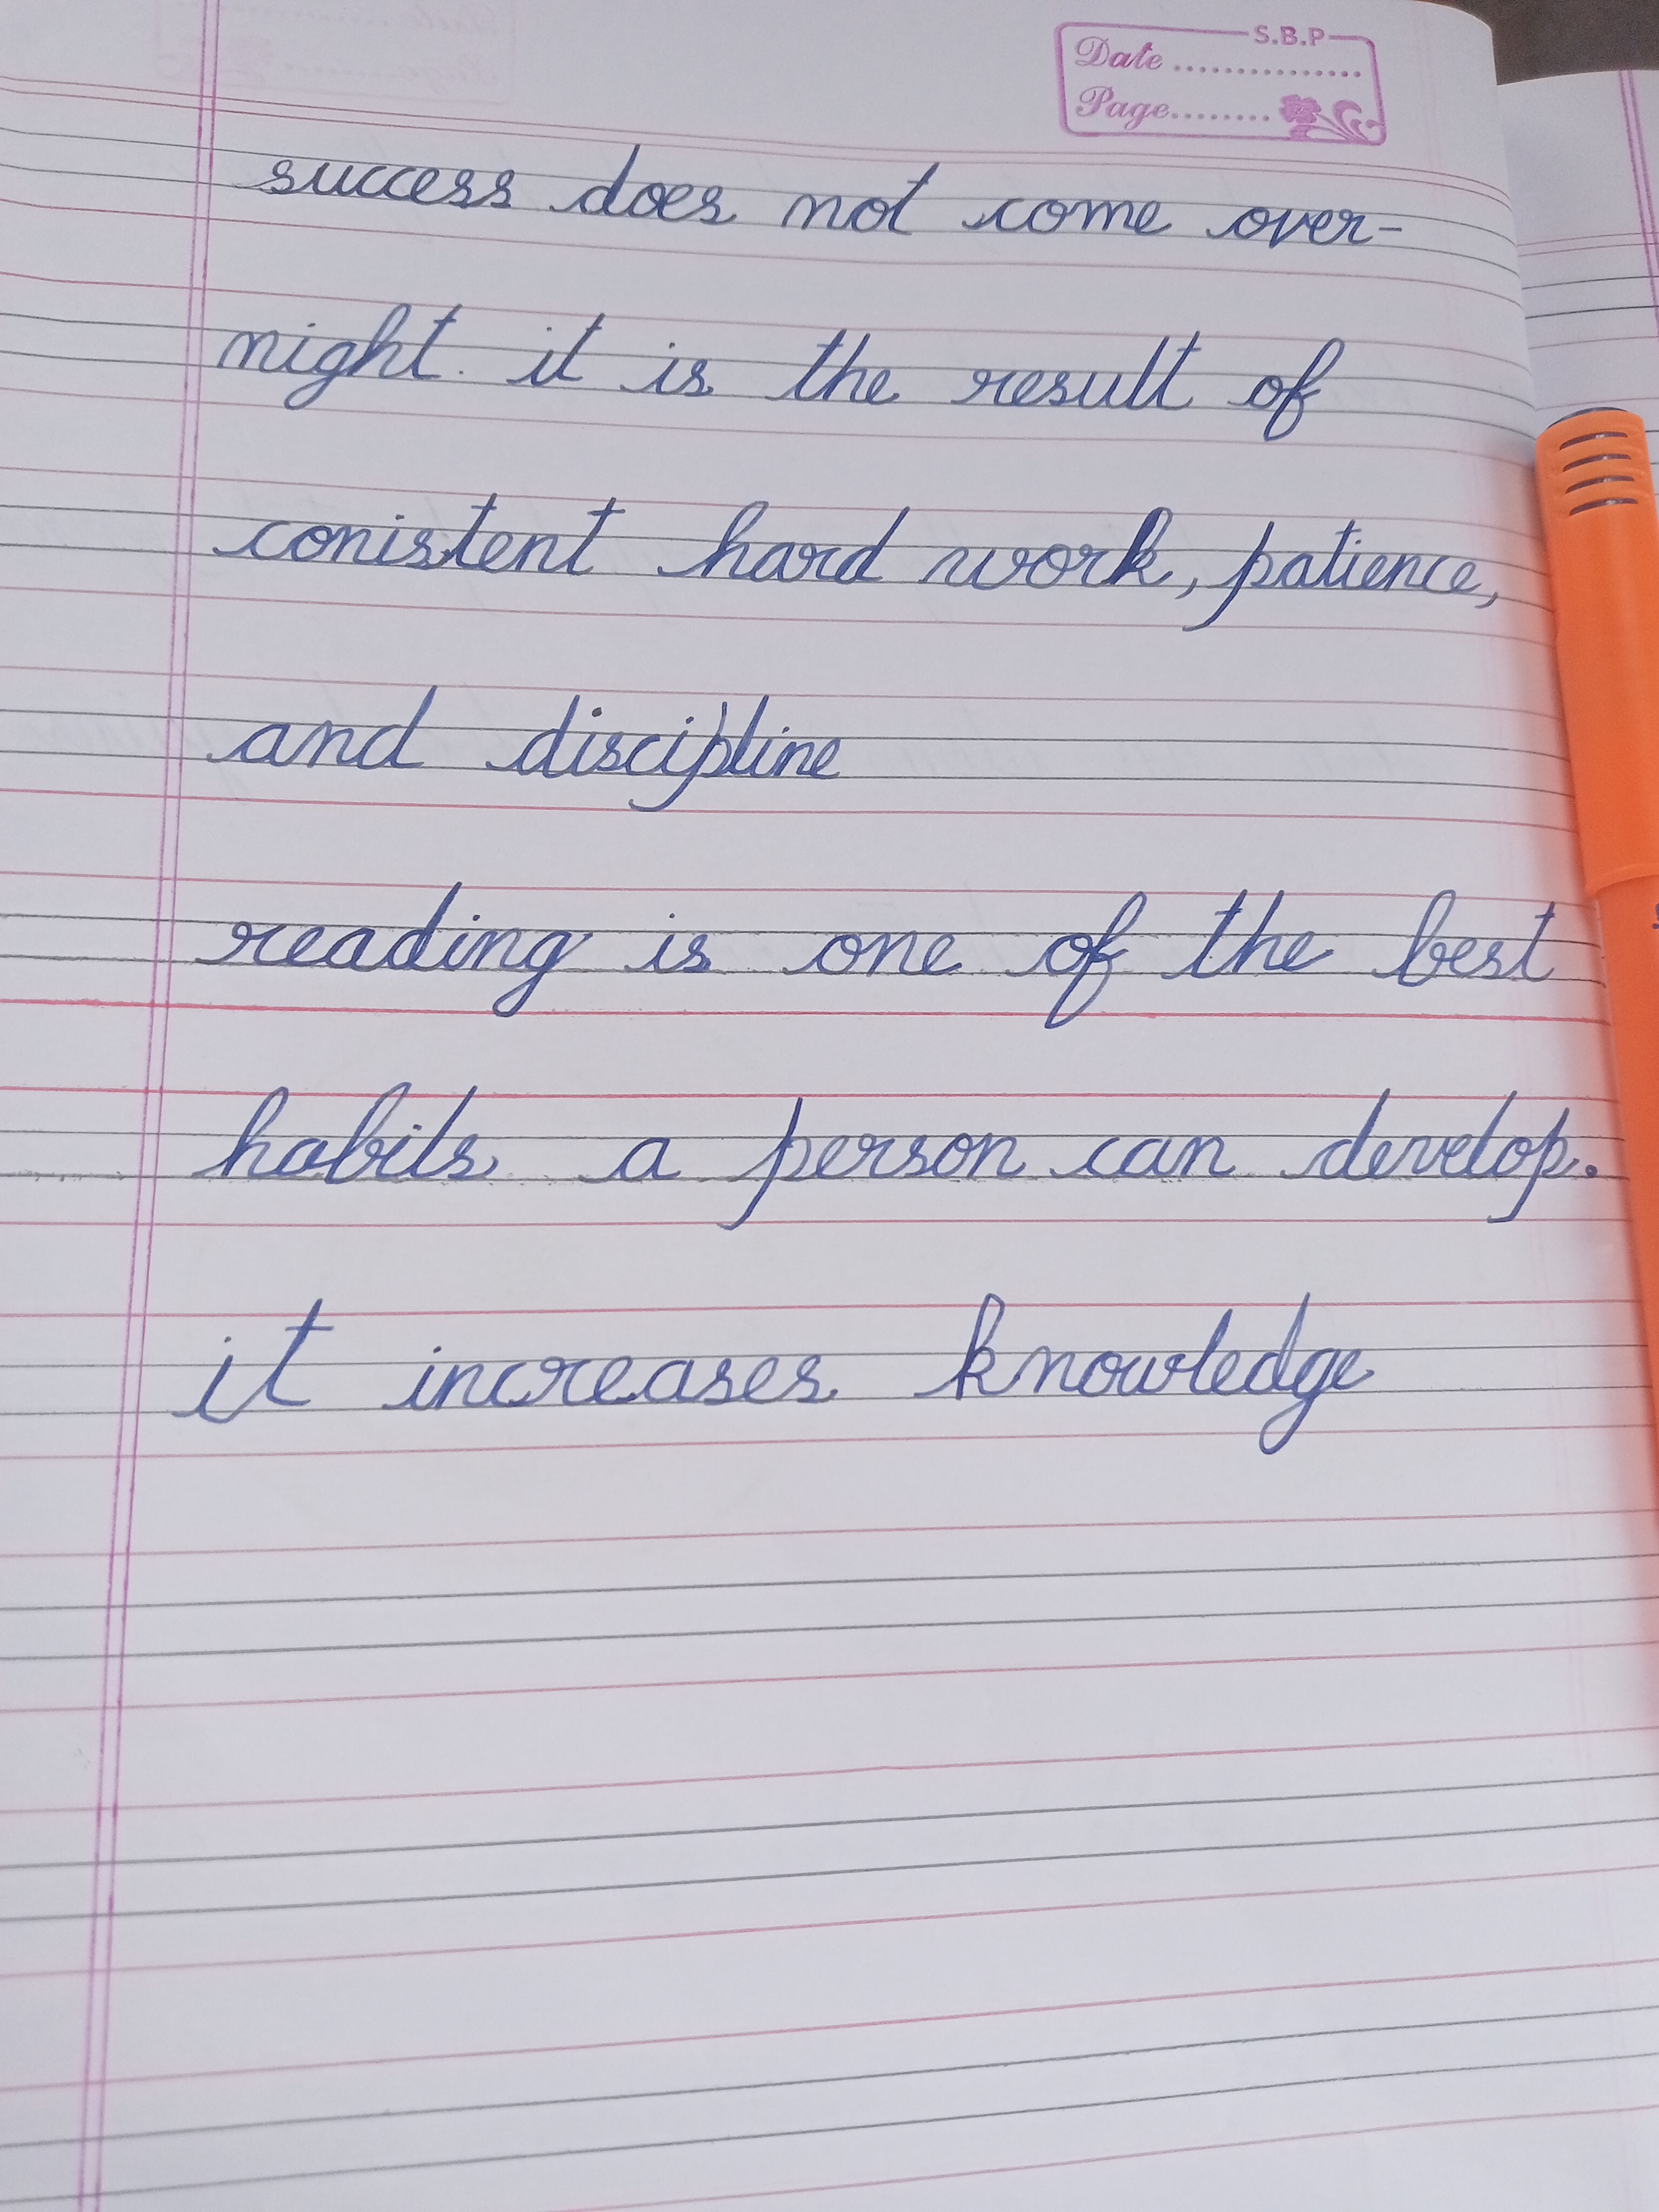 S.B.P
Date ...............
Page........
success does not come over-
night. it is the result of
conistent hard work, patience,
and discipline
reading is one of the best
habits a person can develop.
it increases knowledge